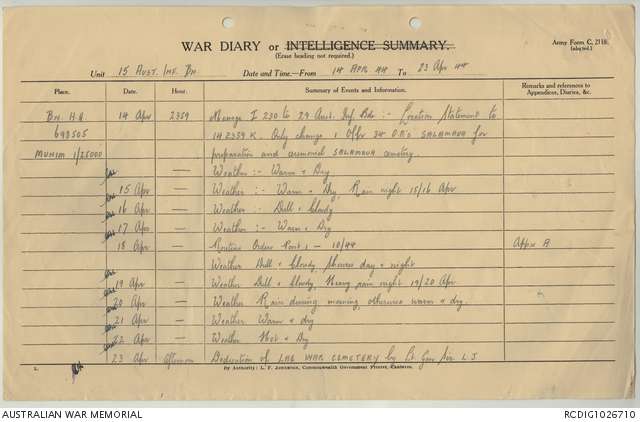 WAR DIARY or INTELLIGENCE SUMMARY.
(Erase heading not required.)
Army Form C. 2118.
Unit 15 AUST. INF. BN Date and Time.—From 14 APR 44 To 23 Apr 44
Place. Date. Hour. Summary of Events and Information. Remarks and references to Appendices, Diaries, &c.
BN. H.Q. 14 Apr 2359 Message I 230 to 29 Aust. Inf. Bde :- Location Statement to
698505 142359 K. Only change 1 Offr 34 O.R's SALAMAUA for
MUNUM 1/25000 preparation and ceremonial SALAMAUA cemetery.
— Weather :- Warm & Dry
15 Apr — Weather :- Warm & Dry, Rain night 15/16 Apr
16 Apr — Weather :- Dull & Cloudy
17 Apr — Weather :- Warm & Dry
18 Apr — Routine Orders Part 1 — 10/44 Appx A
Weather Dull & Cloudy, Showers day & night
19 Apr — Weather Dull & Cloudy, Heavy rain night 19/20 Apr
20 Apr — Weather Rain during morning, otherwise warm & dry.
21 Apr — Weather Warm & dry
22 Apr — Weather Hot & Dry
23 Apr afternoon Dedication of LAE WAR CEMETERY by Lt Gen Sir L J
By Authority: L. F. Johnston, Commonwealth Government Printer, Canberra.
AUSTRALIAN WAR MEMORIAL RCDIG1026710